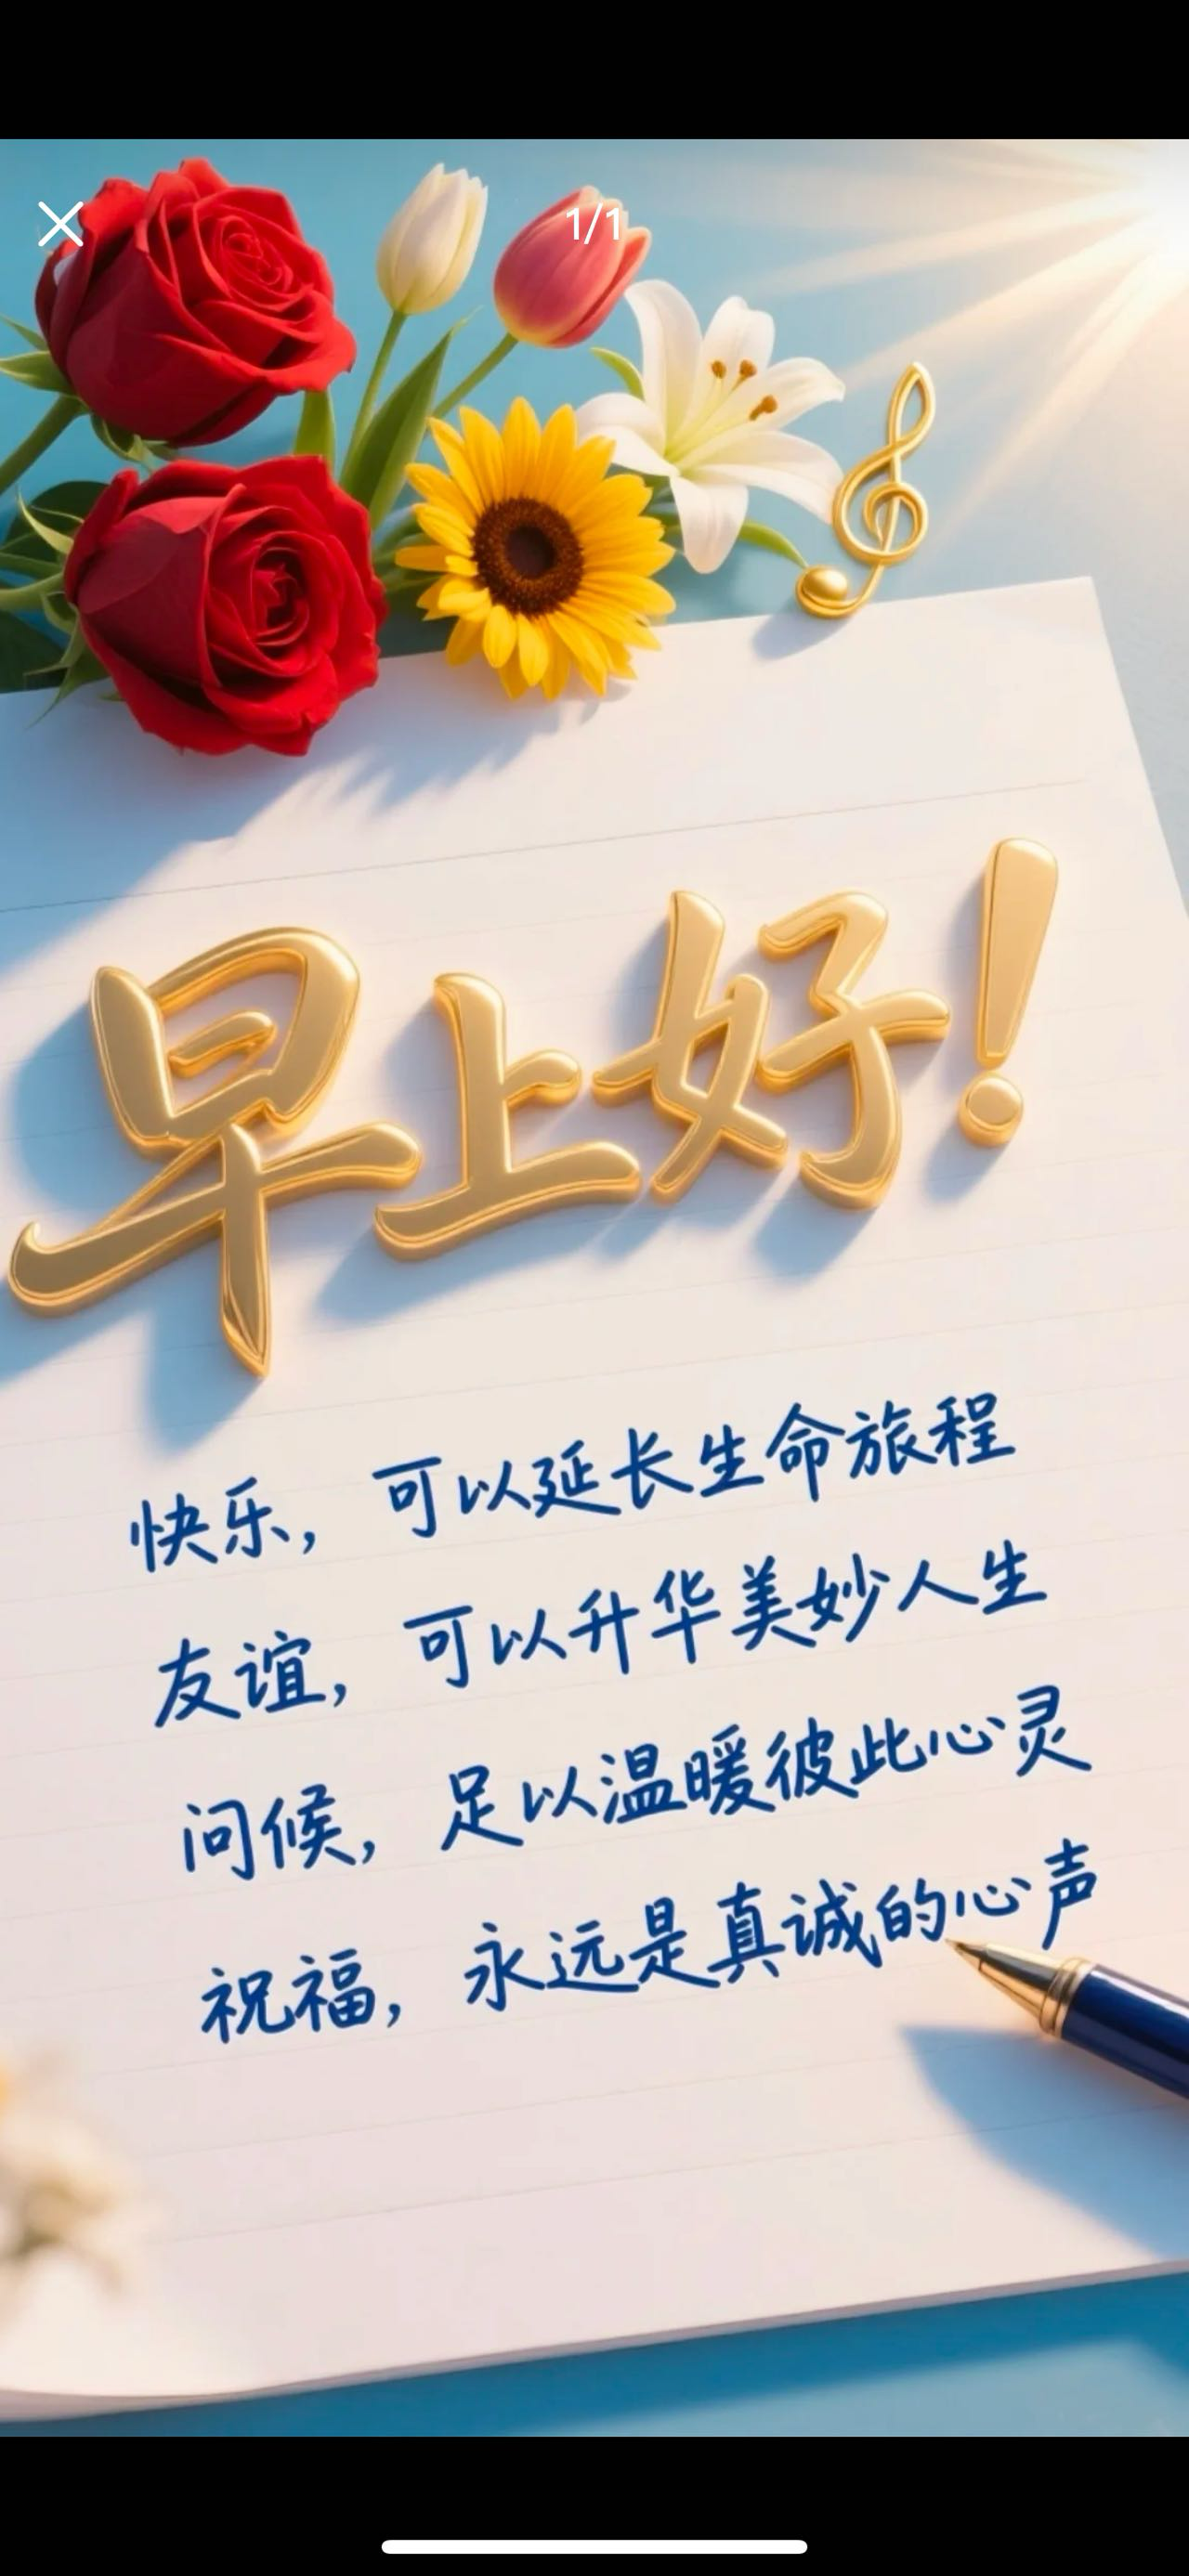 1/1
早上好!
快乐, 可以延长生命旅程
友谊, 可以升华美妙人生
问候, 足以温暖彼此心灵
祝福, 永远是真诚的心声